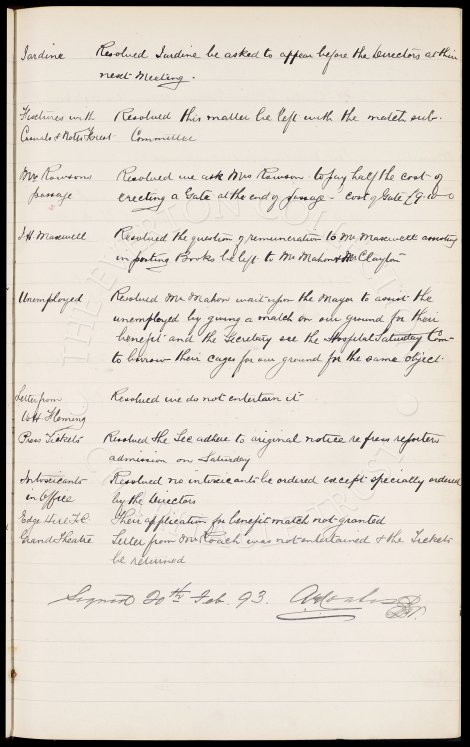 Jardine Resolved Jardine be asked to appear before the Directors at their
next Meeting.
Fixtures with Resolved this matter be left with the match sub.
& Notts Forest Committee
Mrs Rowsons Resolved we ask Mrs Rowson to pay half the cost of
passage erecting a Gate at the end of passage - cost of Gate £9-10-0
J H Maxwell Resolved the question of remuneration to Mr Maxwell assisting
in posting Books be left to Mr Mahon & Mr Clayton
Unemployed Resolved Mr Mahon wait upon the Mayor to assist the
unemployed by giving a match on our ground for their
benefit and the Secretary see the Hospital Saturday Com
to borrow their cages for our ground for the same object.
Letter from Resolved we do not entertain it
W H Fleming
Press Tickets Resolved the Sec adhere to original notice re press reporters
admission on Saturday
Intoxicants Resolved no intoxicants be ordered except specially ordered
in Office by the Directors
Edge Hill F.C. Their application for benefit match not granted
Grand Theatre Letter from Mr Roach was not entertained & the Tickets
be returned
Signed 20th Feb. 93.